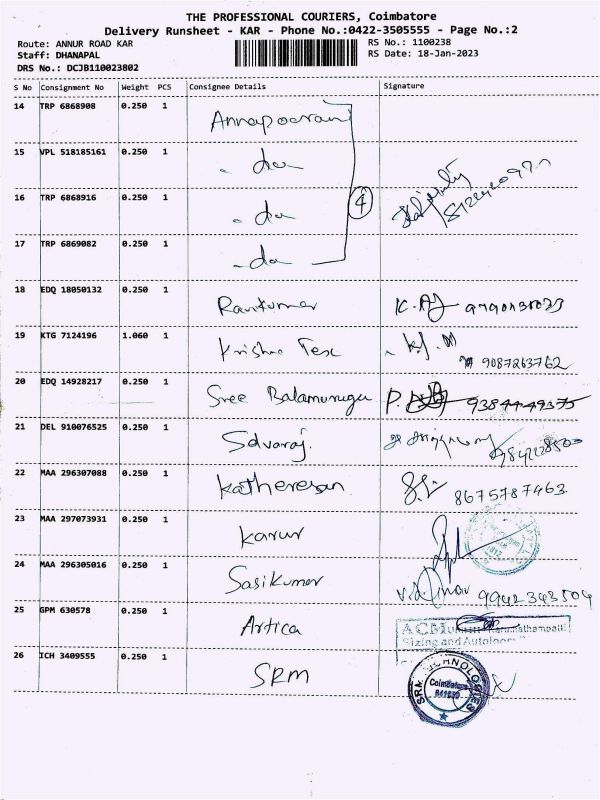 THE PROFESSIONAL COURIERS, Coimbatore
Delivery Runsheet - KAR - Phone No.:0422-3505555 - Page No.:2
Route: ANNUR ROAD KAR
Staff: DHANAPAL
DRS No.: DCJB110023802
RS No.: 1100238
RS Date: 18-Jan-2023
S No Consignment No Weight PCS Consignee Details Signature
14 TRP 6868908 0.250 1 Annapoorani
15 VPL 518185161 0.250 1 - do
16 TRP 6868916 0.250 1 - do 4
17 TRP 6869082 0.250 1 - do
18 EDQ 18050132 0.250 1 Ravikumar
19 KTG 7124196 1.060 1 Krishna Tex 9087263762
20 EDQ 14928217 0.250 1 Sree Balamurugu 93844-49375
21 DEL 910076525 0.250 1 Selvaraj.
22 MAA 296307088 0.250 1 Katheresan 8675787463
23 MAA 297073931 0.250 1 Karur
24 MAA 296305016 0.250 1 Sasikumar 9942343504
25 GPM 630578 0.250 1 Artica
Sizing and
26 ICH 3409555 0.250 1 SRM
SRM TECHNOLOGIES
Coimbatore